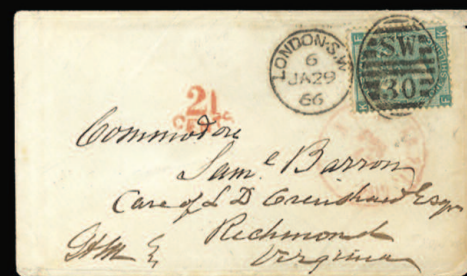 LONDON.S.W
6
JA29
66
SW
30
21
CENTS
Commodore
Saml Barron
Care of L D Crenshaw Esqr
Richmond
Virginia